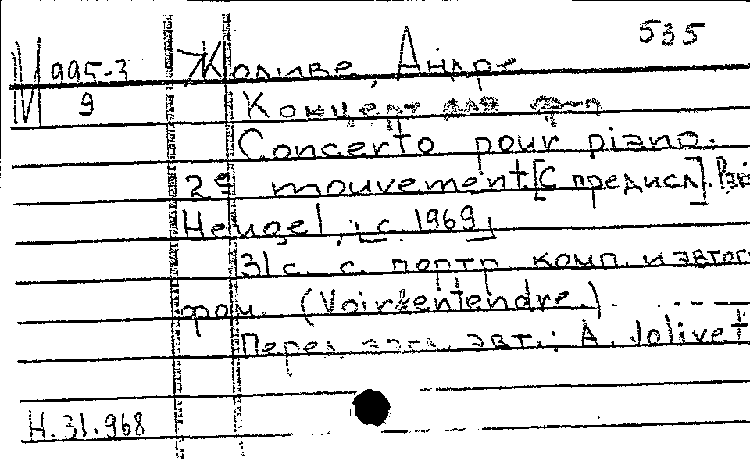 535
М 995-3
9
Жоливе, Андре
Концерт для ф-п
Concerto pour piano.
2e mouvement. [С предисл].
Heugel, [с. 1969]
31 с. с. портр. комп. и автог
раф. (Voir & entendre.)
Перед загл. авт.: A. Jolivet
Н.31.968